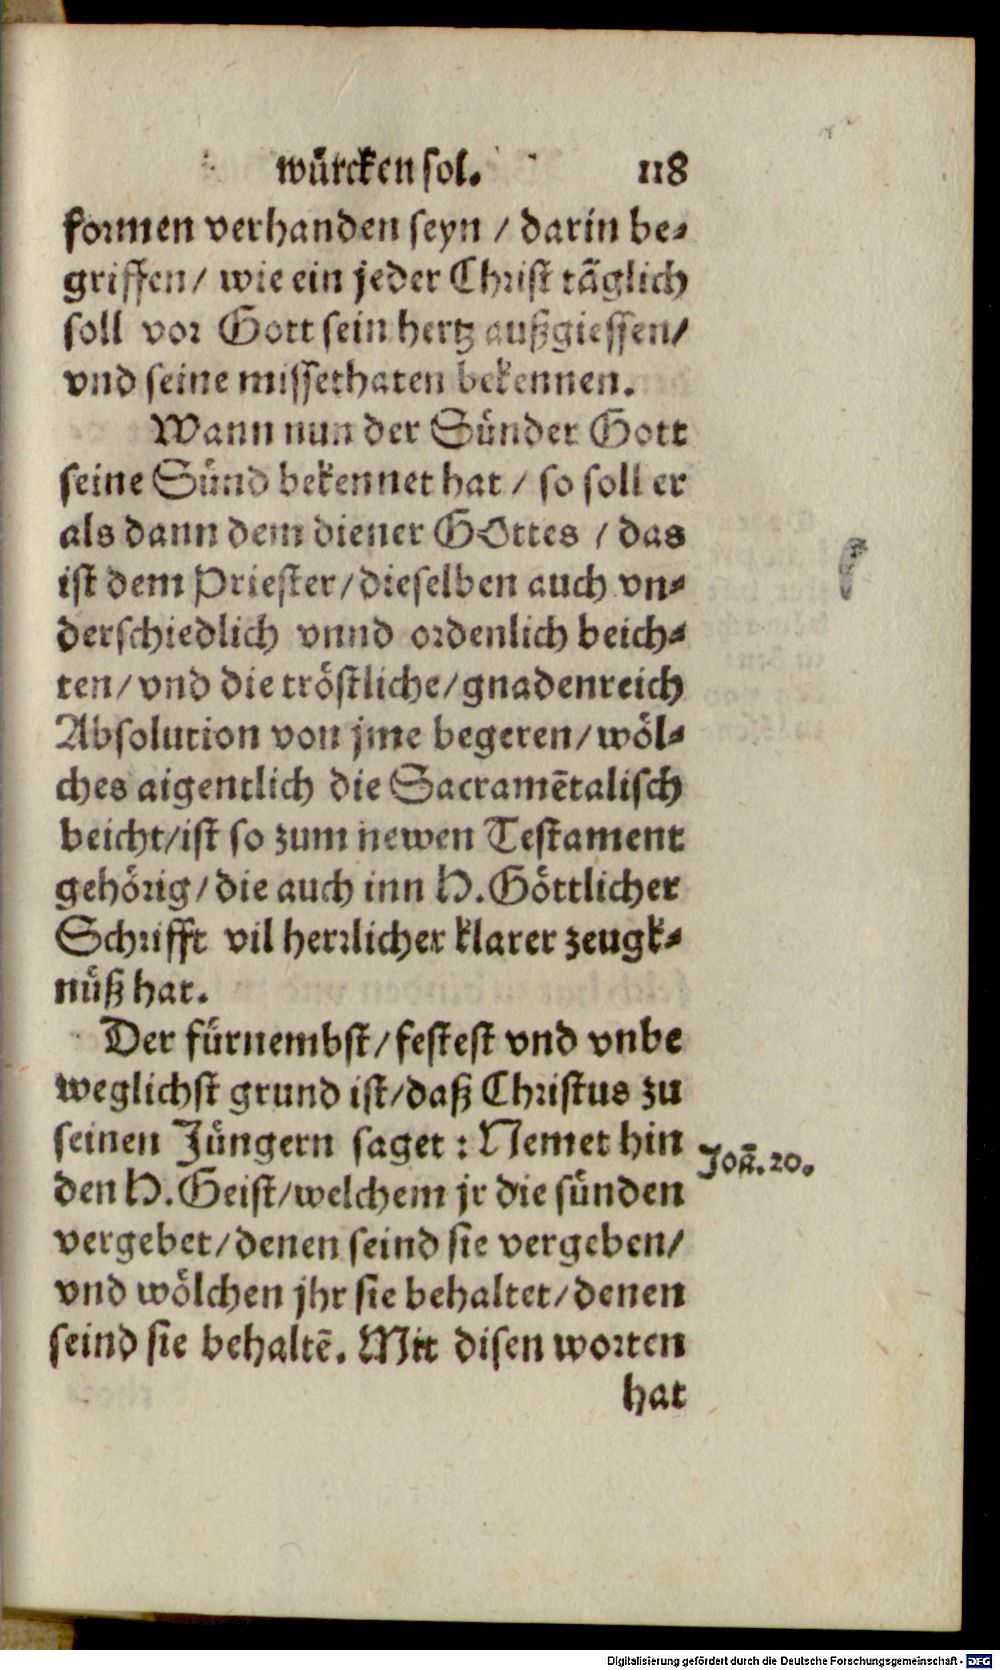 würcken sol. 118
formen verhanden seyn / darin be-
griffen/ wie ein jeder Christ täglich
soll vor Gott sein hertz außgiessen/
vnd seine missethaten bekennen.
Wann nun der Sünder Gott
seine Sünd bekennet hat / so soll er
als dann dem diener GOttes / das
ist dem Priester/dieselben auch vn-
derschiedlich vnnd ordenlich beich-
ten/vnd die tröstliche/gnadenreich
Absolution von jme begeren/wöl-
ches aigentlich die Sacramētalisch
beicht/ist so zum newen Testament
gehörig/die auch inn H.Göttlicher
Schrifft vil herrlicher klarer zeugk-
nüß hat.
Der fürnembst/festest vnd vnbe
weglichst grund ist/daß Christus zu
seinen Jüngern saget : Nemet hin
Joā. 20.
den H.Geist/welchem jr die sünden
vergebet/denen seind sie vergeben/
vnd wölchen jhr sie behaltet/denen
seind sie behaltē. Mit disen worten
hat
Digitalisierung gefördert durch die Deutsche Forschungsgemeinschaft - DFG